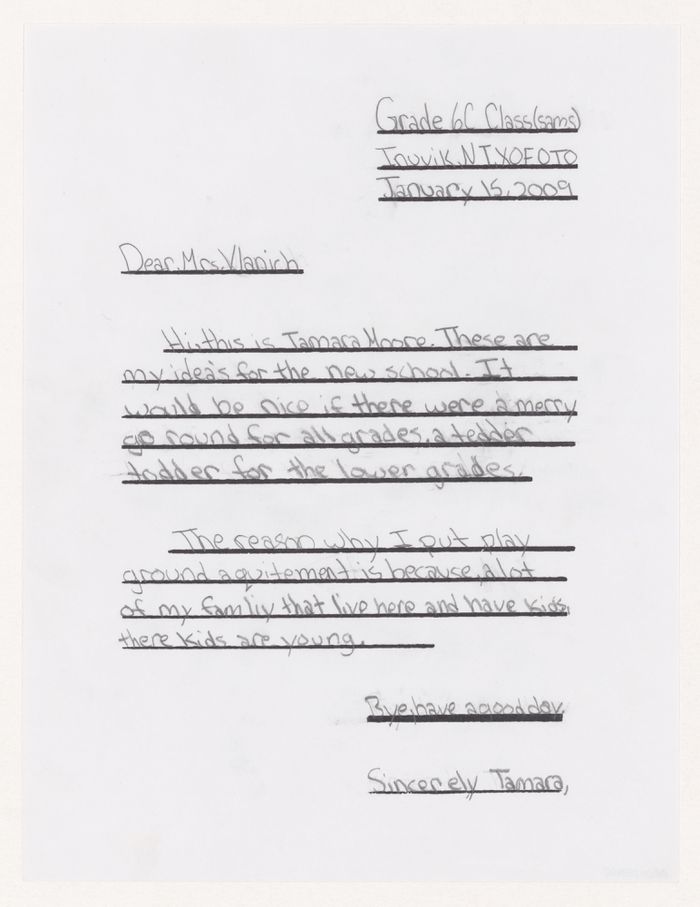 Grade 6C Class(sams)
Inuvik.NT.X0E0T0
January 15, 2009
Dear.Mrs.Vlanich
Hi, this is Tamara Moore. These are
my idea's for the new school. It
would be nice if there were a merry
go round for all grades, a tedder
todder for the lower grades.
The reason why I put play
ground aquitement is because, alot
of my famliy that live here and have kids,
there kids are young.
Bye, have a good day.
Sincerely Tamara,